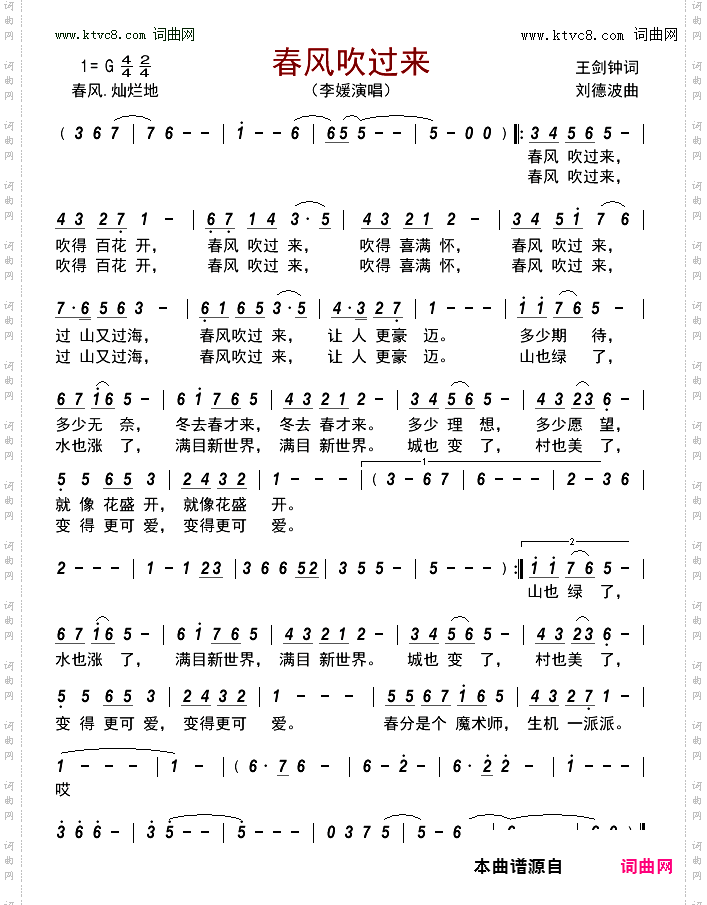 www.ktvc8.com 词曲网
www.ktvc8.com 词曲网
1=G 4/4 2/4
春风吹过来
王剑钟词
春风.灿烂地
（李媛演唱）
刘德波曲
( 3 6 7 | 7 6 - - | 1 - - 6 | 6 5 5 - - | 5 - 0 0 ) ‖: 3 4 5 6 5 - |
春风 吹过来，
春风 吹过来，
4 3 2 7 1 - | 6 7 1 4 3 · 5 | 4 3 2 1 2 - | 3 4 5 1 7 6 |
吹得 百花 开， 春风 吹过 来， 吹得 喜满 怀， 春风 吹过 来，
吹得 百花 开， 春风 吹过 来， 吹得 喜满 怀， 春风 吹过 来，
7 · 6 5 6 3 - | 6 1 6 5 3 · 5 | 4 · 3 2 7 | 1 - - - | 1 1 7 6 5 - |
过 山又过海， 春风吹过 来， 让 人 更豪 迈。 多少期 待，
过 山又过海， 春风吹过 来， 让 人 更豪 迈。 山也绿 了，
6 7 1 6 5 - | 6 1 7 6 5 | 4 3 2 1 2 - | 3 4 5 6 5 - | 4 3 2 3 6 - |
多少无 奈， 冬去春才来， 冬去 春才来。 多少 理 想， 多少愿 望，
水也涨 了， 满目新世界， 满目 新世界。 城也 变 了， 村也美 了，
5 5 6 5 3 | 2 4 3 2 | 1 - - - | ( 3 - 6 7 | 6 - - - | 2 - 3 6 |
1
就 像 花盛 开， 就像花盛 开。
变 得 更可 爱， 变得更可 爱。
2 - - - | 1 - 1 2 3 | 3 6 6 5 2 | 3 5 5 - | 5 - - - ) :‖ 1 1 7 6 5 - |
2
山也 绿 了，
6 7 1 6 5 - | 6 1 7 6 5 | 4 3 2 1 2 - | 3 4 5 6 5 - | 4 3 2 3 6 - |
水也涨 了， 满目新世界， 满目 新世界。 城也 变 了， 村也美 了，
5 5 6 5 3 | 2 4 3 2 | 1 - - - | 5 5 6 7 1 6 5 | 4 3 2 7 1 - |
变 得 更可 爱， 变得更可 爱。 春分是个 魔术师， 生机 一派派。
1 - - | 1 - | ( 6 · 7 6 | 6 - 2 - | 6 · 2 2 | 1 - - - |
哎
3 6 6 - | 3 5 - - | 5 - - - | 0 3 7 5 | 5 - 6
本曲谱源自 词曲网
词曲网
词曲网